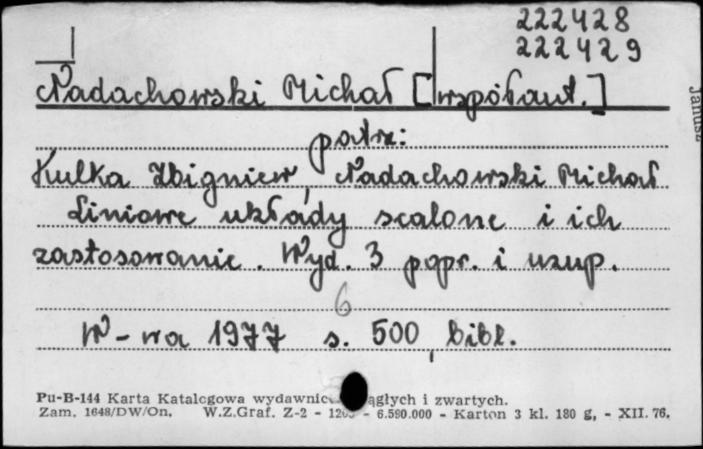 222428
222429
Nadachowski Michał [współaut.]
Janusz
patrz:
Kulka Zbigniew, Nadachowski Michał
Liniowe układy scalone i ich
zastosowanie. Wyd. 3 popr. i uzup.
6
W-wa 1977 s. 500, bibl.
Pu-B-144 Karta Katalogowa wydawnic ągłych i zwartych.
Zam. 1648/DW/On. W.Z.Graf. Z-2 - - 6.590.000 - Karton 3 kl. 180 g, - XII. 76.